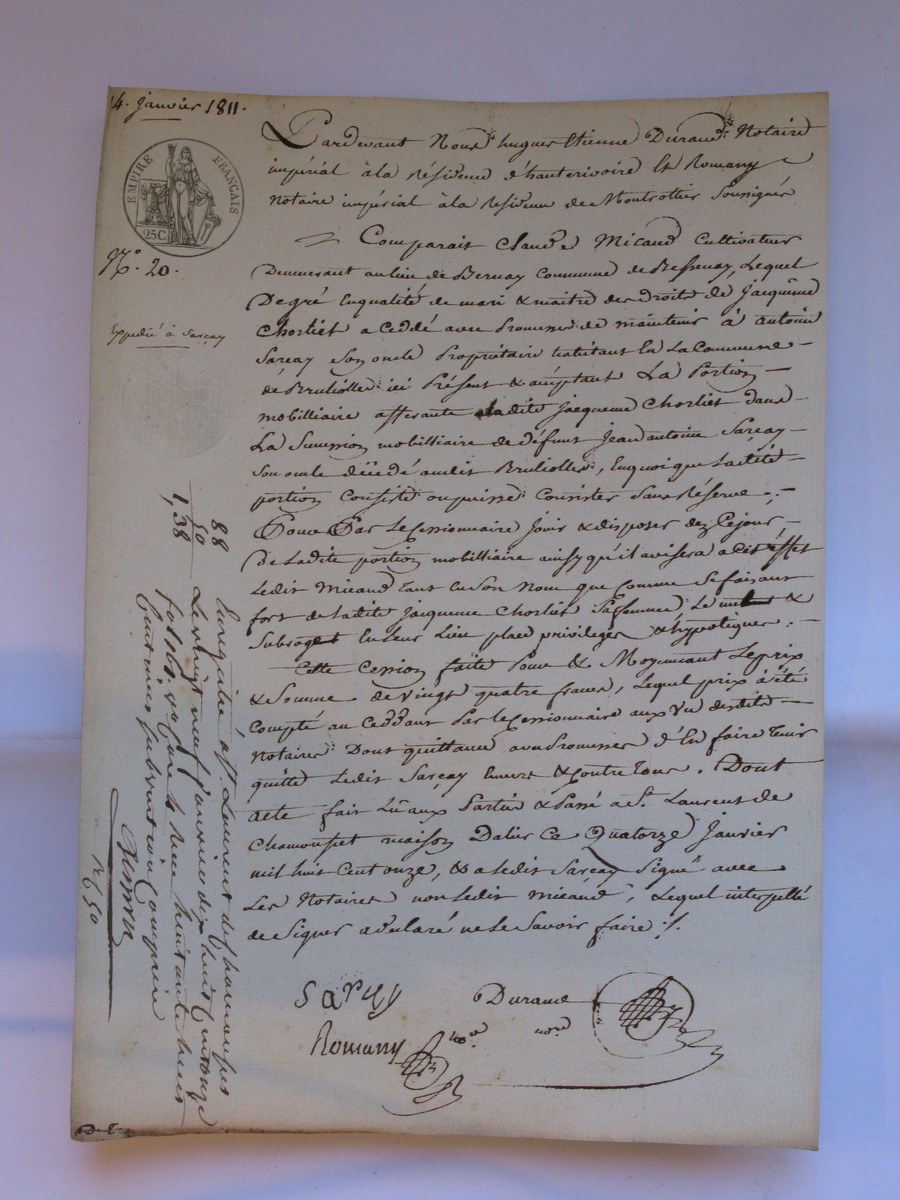 14. janvier 1811.
EMPIRE FRANÇAIS
25C
N.° 20.
Expedié à Sarçay
Pardevant Nous hugues Etienne Durand Notaire
impérial à la résidence d'hauterivoire Et Romany
Notaire impérial à la résidence de Montrottier Soussignés
Comparait Claude Micaud Cultivateur
Demeurant au lieu de Bernay Commune de Bessenay, Lequel
De gré En qualité de mari & maitre des droits de Jacqueme
Chorliet a Ceddé avec Promesse de maintenir à antoine
Sarçay Son oncle Propriétaire habitant En La Commune
de Brulliolles ici Présent & acceptant La Portion
mobilliaire afferante à ladite Jacqueme Chorliet dans
La Succession mobilliaire de défunt Jean antoine Sarçay
Son oncle décédé audit Brulliolles, En quoi que Ladite
portion Consiste ou puisse Consister Sans Réserve.
Pour Par Le Cessionnaire Jouir & disposer dez Ce jour
De Ladite portion mobilliaire ainsy qu'il avisera a Cet effet
Ledit Micaud tant En Son Nom que Comme Se faisant
fort de Ladite Jacqueme Chorliet Sa femme Le met &
Subroge En Leur Lieu place privileges & hypotèques.
Cette Cession faite Pour & Moyennant Le prix
& Somme de vingt quatre francs, Lequel prix à été
Compté au Ceddant Par le Cessionnaire aux vu desdits
Notaires Dont quittance avec Promesse d'En faire tenir
quitte Ledit Sarçay Envers & Contre tous. Dont
acte fait Lû aux Parties & Passé a S.t Laurent de
Chamousset maison Dalier Ce Quatorze Janvier
mil huit Cent onze, & a Ledit Sarçay Signé avec
Les Notaires non Ledit micaud, Lequel interpellé
de Signer a déclaré ne Le Savoir faire /.
Sarçay
Durand
Romany
nore
nore
88
50
1,38
Enregistré à S.t Laurent de Chamousset
Le vingt neuf janvier dix huit Cent onze
f.o 160 reçu quatre vingt huit
Centimes Subvention Comprise